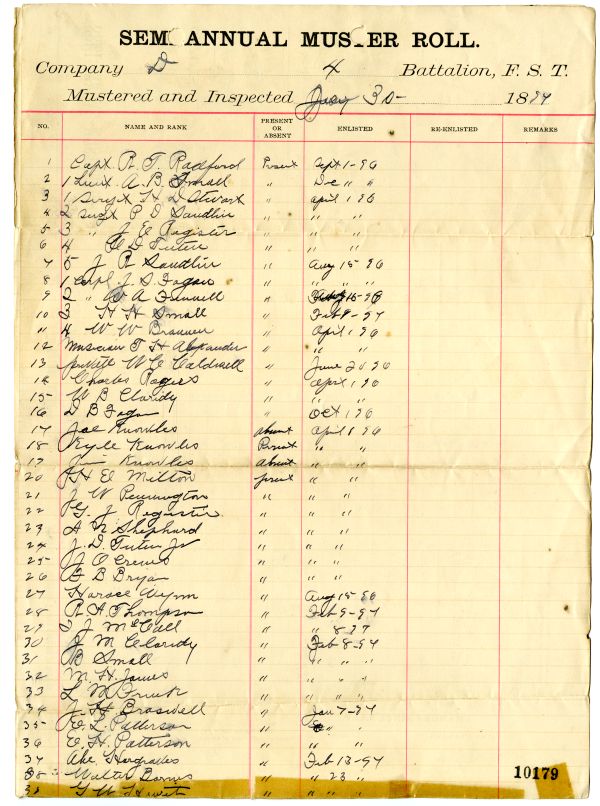 SEMI ANNUAL MUSTER ROLL.
Company D 4 Battalion, F. S. T.
Mustered and Inspected July 30 1897
NO. NAME AND RANK PRESENT OR ABSENT ENLISTED RE-ENLISTED REMARKS
1 Capt. R. T. Radford Present Sept 1-96
2 1 Lieut. A. B. Small " Dec " "
3 1 Sergt H D Stewart " april 1 96
4 2 Sergt P D Sandlin " " "
5 3 " J E Register " " "
6 4 " D Tuten " " "
7 5 J R Sandlin " Aug 15-96
8 1 Corpl J. S. Fagan " " "
9 2 " W A Funnell " Aug 15-96
10 3 H H Small " Feb 9-97
11 4 W W Brannen " April 1 96
12 Musician T H Alexander " " "
13 private W C Caldwell " June 20 96
14 Charles Rogers " april 1 96
15 W B Clardy " " "
16 D B Fagan " Oct 1 96
17 Joe Knowles absent april 1 96
18 Kyle Knowles Present " "
19 Jim Knowles absent " "
20 H E Milton present " "
21 J W Pennington " " "
22 G. J Register " " "
23 A N Shephard " " "
24 J. D. Tuten Jr " " "
25 J O Crews " " "
26 B B Bryan " " "
27 Horace Wynn " Aug 15-96
28 R A Thompson " Feb 9-97
29 J McCall " " 8 97
30 J M Clardy " Feb 8-97
31 B Small " " " "
32 M. H. James " " "
33 L M " " "
34 J H Braswell " Jan 7-97
35 E. L Patterson " " "
36 E. H. Patterson " " "
37 Abe Hargraves " Feb 13-97
38 Walter Barrs " " 23 "
39 G W Hewett " " " "
10179